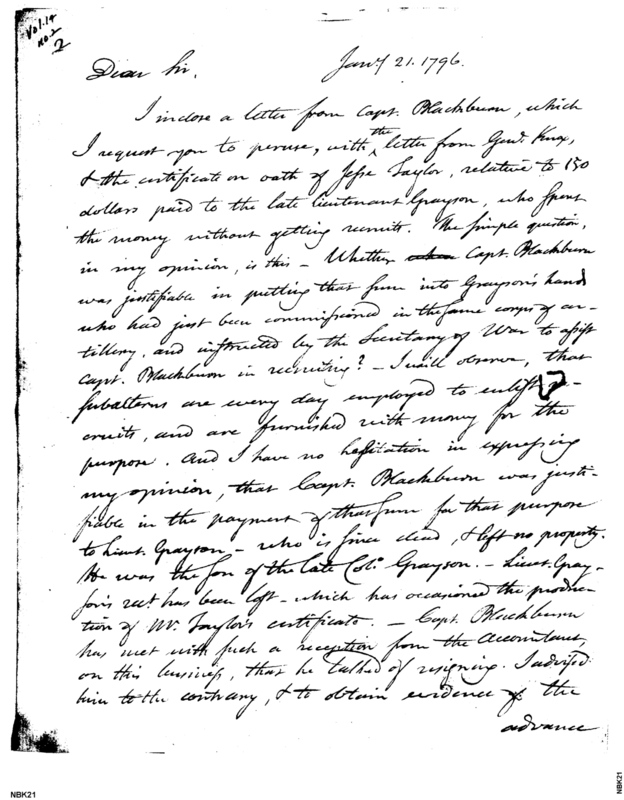 Vol. 14
no. 2
2
Dear Sir,
Jany 21. 1796.
I inclose a letter from Capt. Blackburn, which
I request you to peruse, with the letter from Genl. Knox,
& the certificate on oath of Jesse Taylor, relative to 150
dollars paid to the late lieutenant Grayson, who spent
the money without getting recruits. The simple question,
in my opinion, is this – Whether Capt. Blackburn
was justifiable in putting that sum into Grayson's hands
who had just been commissioned in the same corps of ar-
tillery, and instructed by the Secretary of War to assist
Capt. Blackburn in recruiting? – I will observe, that
subalterns are every day employed to enlist re-
cruits, and are furnished with money for the
purpose. And I have no hesitation in expressing
my opinion, that Capt. Blackburn was justi-
fiable in the payment of that sum for that purpose
to Lieut. Grayson – who is since dead, & left no property.
He was the son of the late Colo. Grayson. – Lieut. Gray-
son's rect. has been lost – which has occasioned the produc-
tion of Mr. Taylor's certificate. – Capt. Blackburn
has met with such a reception from the Accountant,
on this business, that he talked of resigning. I advised
him to the contrary, & to obtain evidence of the
advance
NBK21
NBK21